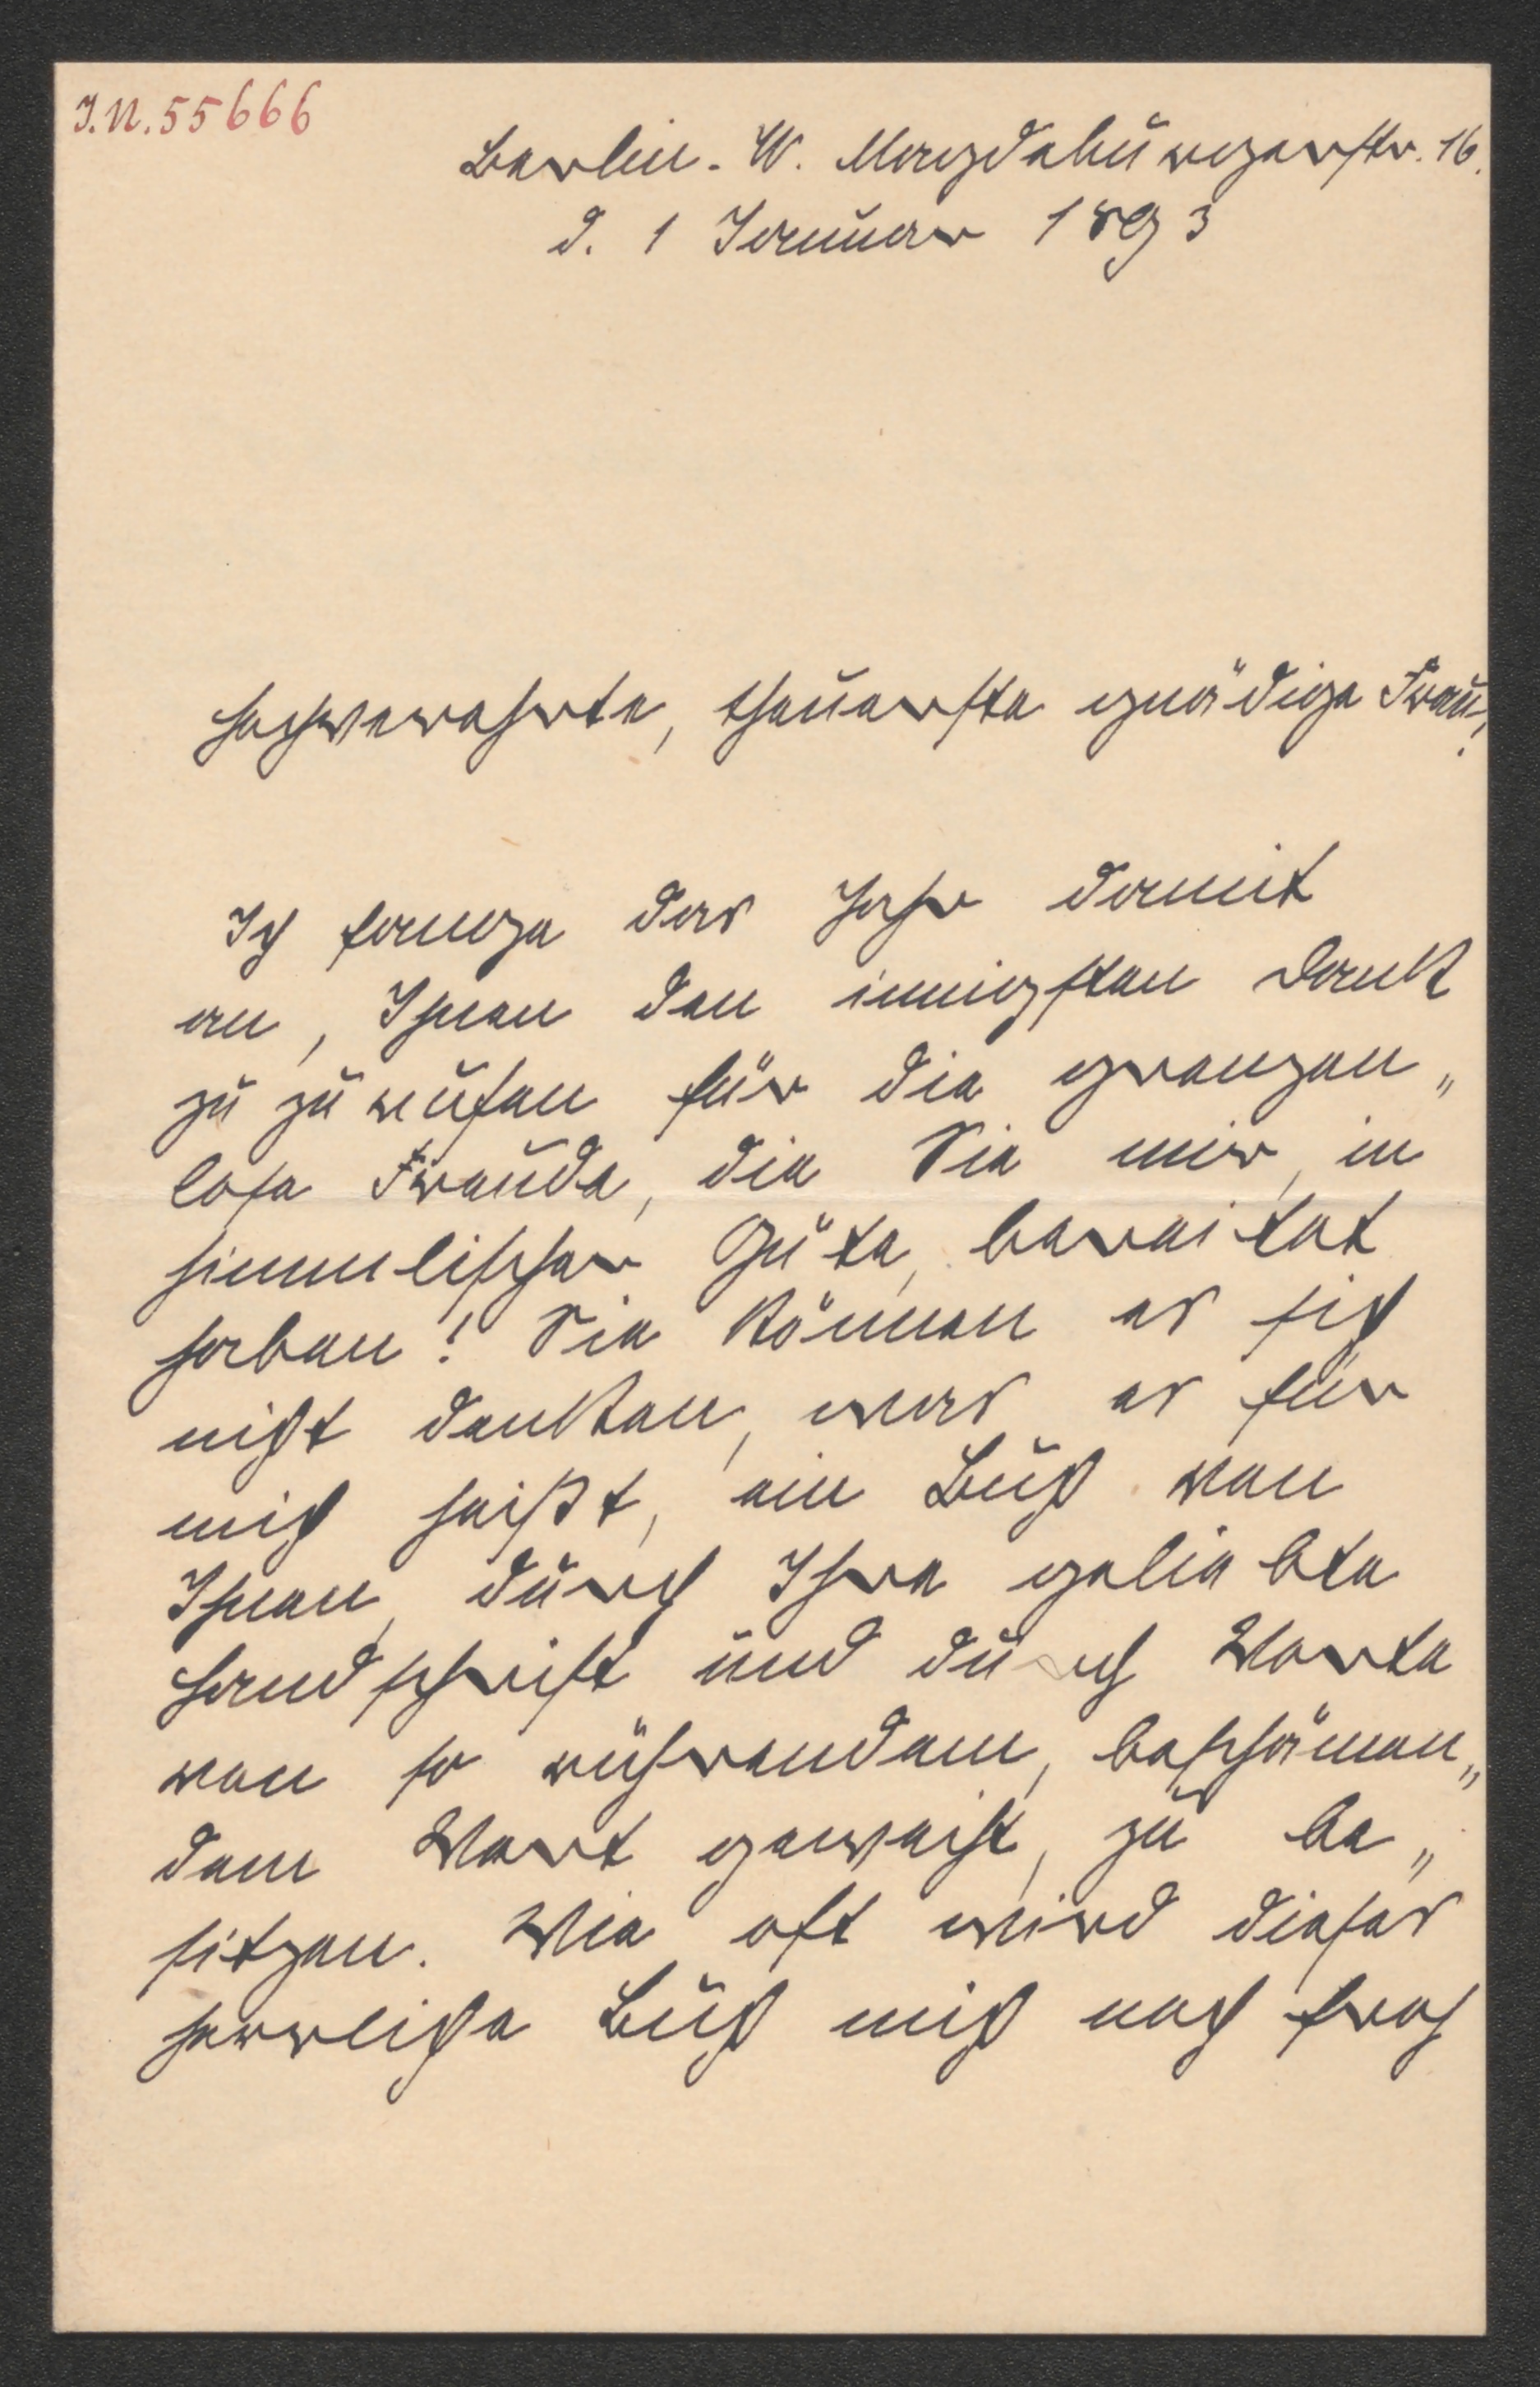 I.N. 55666
Berlin. W. Magdeburgerstr. 16.
d. 1 Januar 1893
Hochverehrte, theuerste gnädige Frau!
Ich fange das Jahr damit
an, Ihnen den innigsten Dank
zu zu rufen für die grenzen„
lose Freude, die Sie mir, in
himmlischer Güte, bereitet
haben! Sie können es sich
nicht denken, was es für
mich heißt, ein Buch von
Ihnen, durch Ihre geliebte
Handschrift und durch Worte
von so rührendem, beschämen„
dem Wert geweiht, zu be„
sitzen. Wie oft wird dieses
herrliche Buch mich noch froh